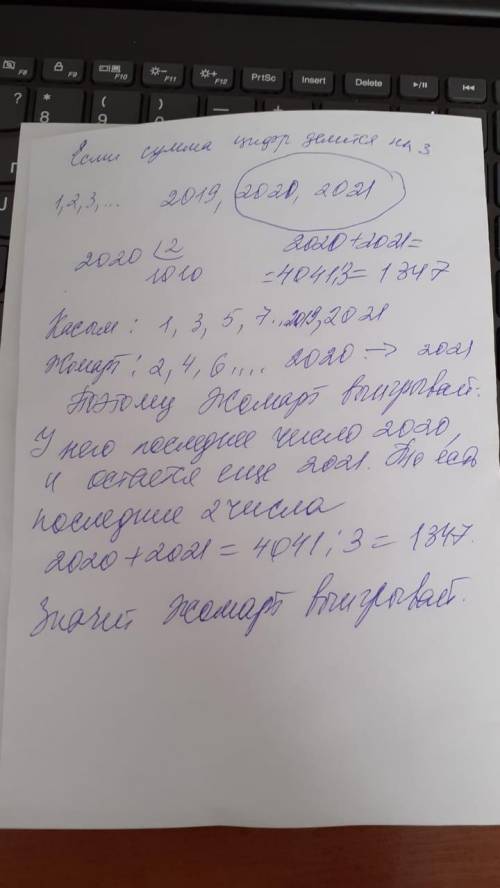 F8 F9 F10 F11 F12 PrtSc Insert Delete
? * 8 ( 9 ) —
Если сумма цифр делится на 3
1, 2, 3, ... 2019, 2020, 2021
2020 2 2020+2021=
1010 =4041:3= 1347
Касым: 1, 3, 5, 7..2019, 2021
Жомарт: 2, 4, 6 .... 2020 → 2021
Поэтому Жомарт выигрывает.
У него последнее число 2020,
и остается еще 2021. То есть
последние 2 числа
2020 + 2021 = 4041 : 3 = 1347.
Значит Жомарт выигрывает.